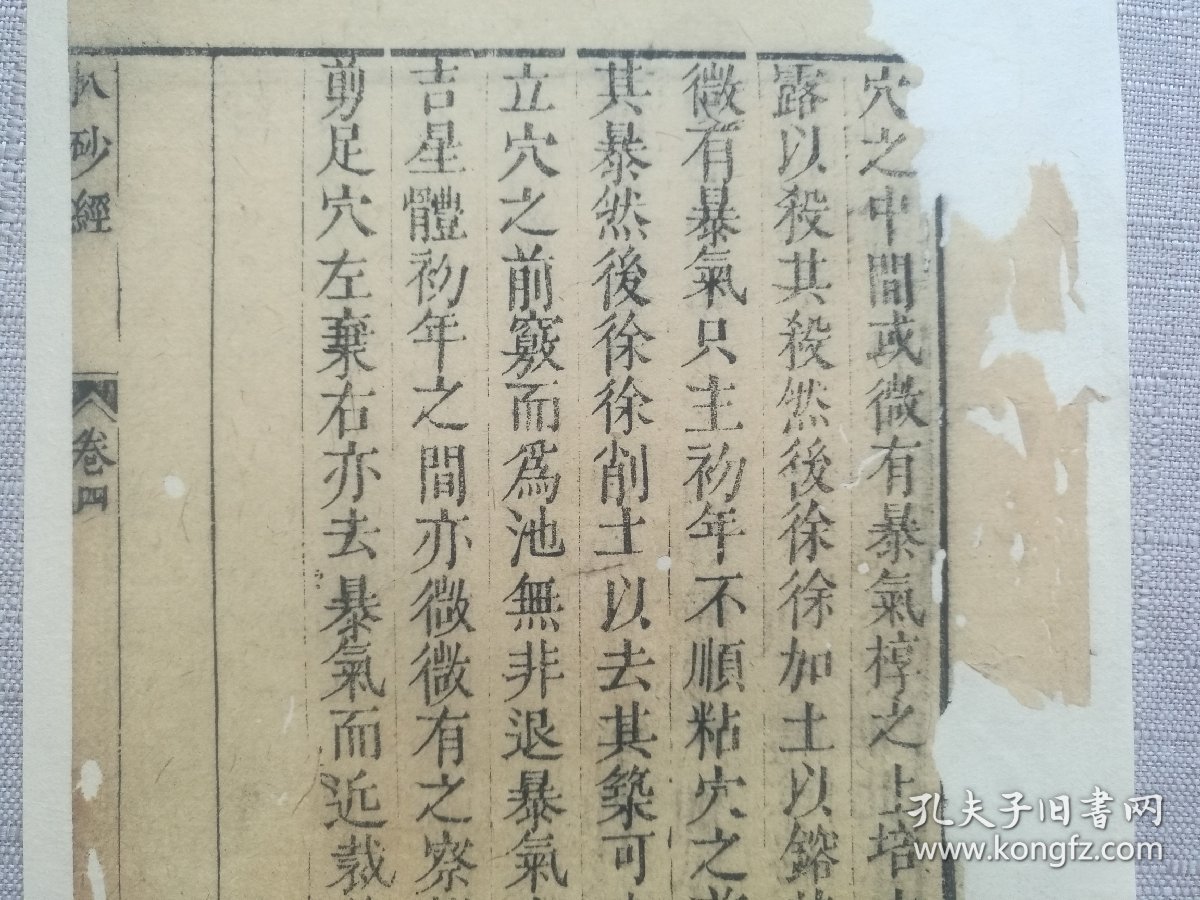 穴之中間或微有暴氣椁之上培
露以殺其殺然後徐徐加土以鎔
微有暴氣只主初年不順粘穴之
其暴然後徐徐削土以去其築可
立穴之前竅而爲池無非退暴氣
吉星體初年之間亦微微有之察
剪足穴左棄右亦去暴氣而近裁
扒砂經 卷四
孔夫子旧書网
www.kongfz.com